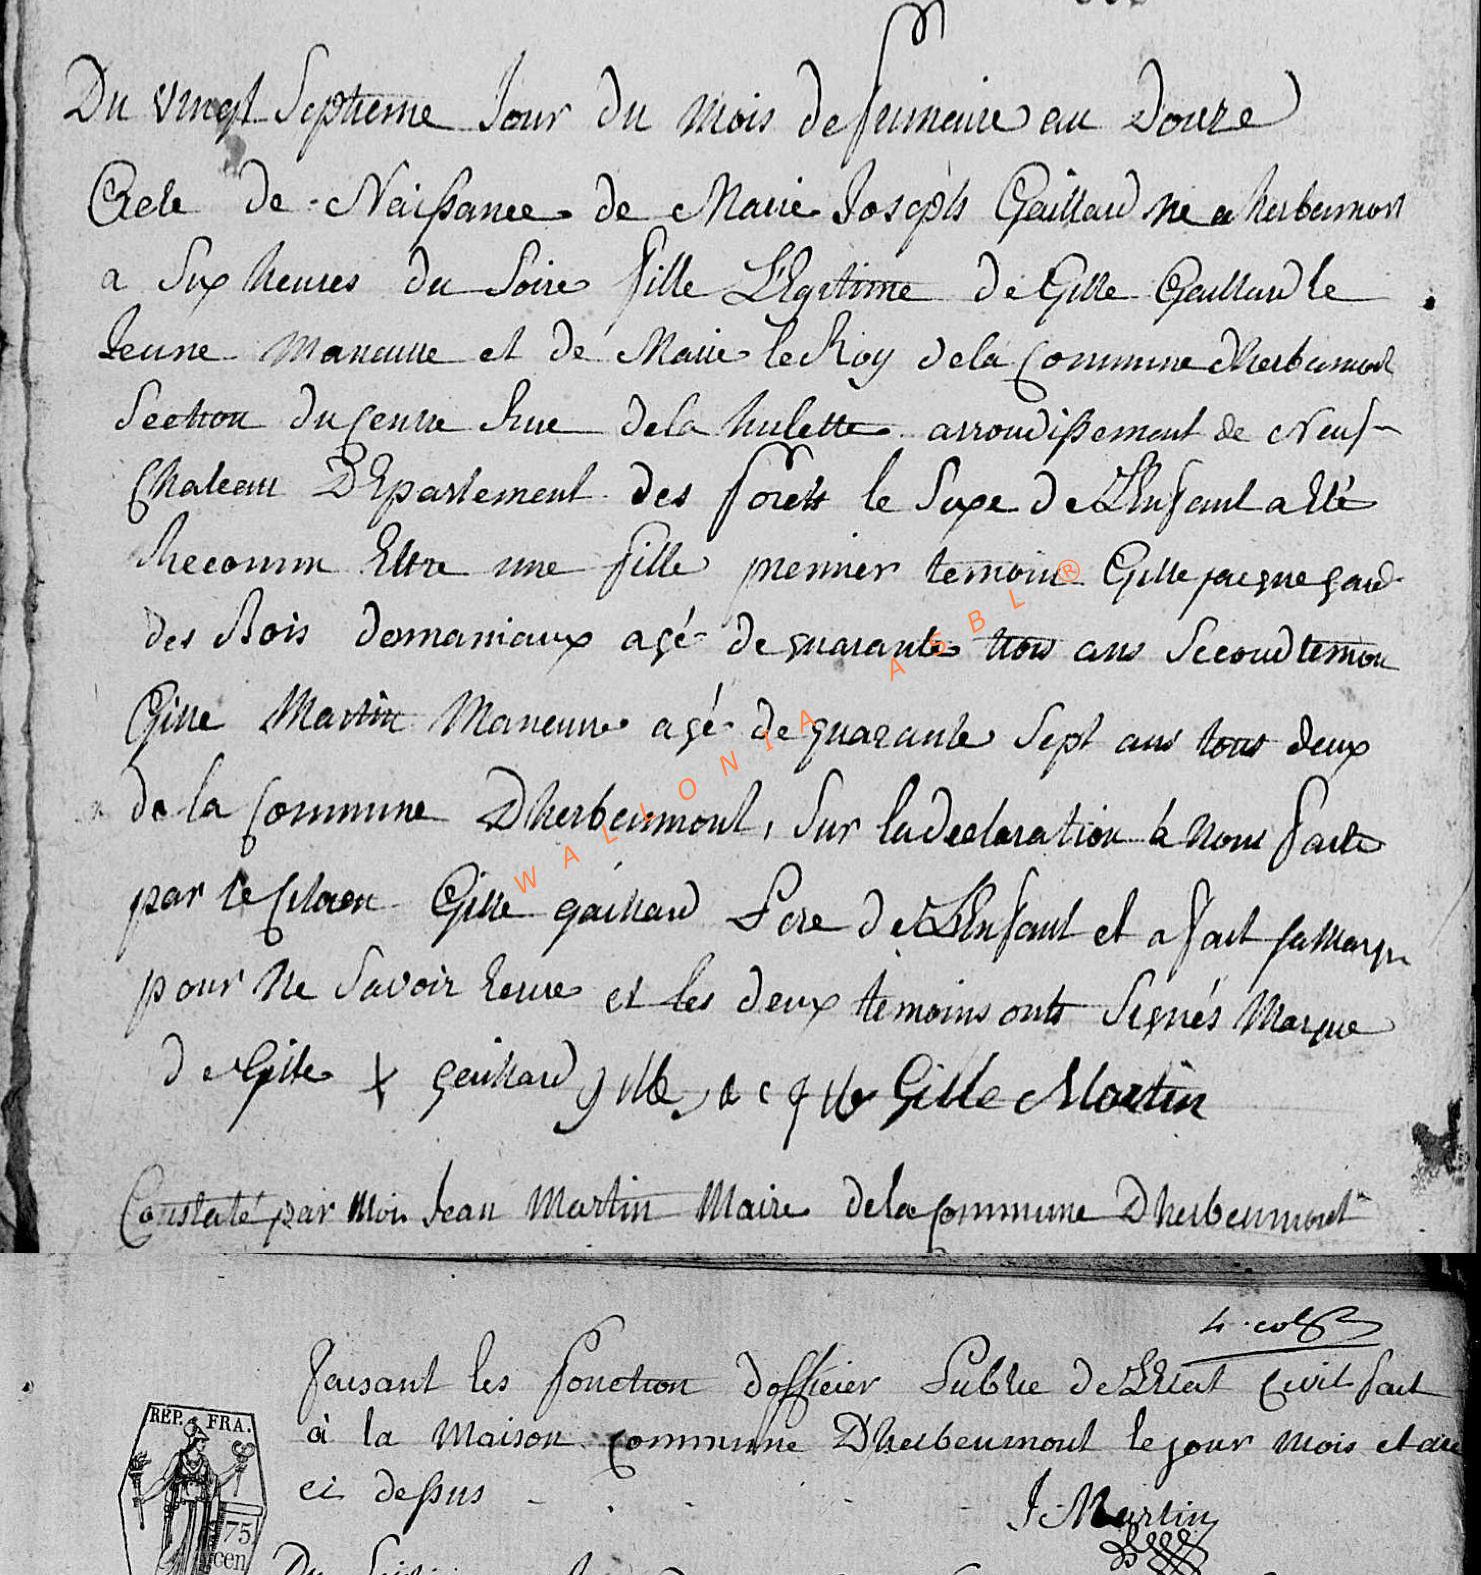 Du vingt Septieme Jour du mois de frimaire an Douze
Acte de Naissance de Marie Joseph Gaillard né a herbeumont
a Six heures du Soire fille LEgitime de Gille Gaillard le
Jeune Maneuvre et de Marie le Roy de la Commune dherbeumont
Section du Centre Rue de la hulette arrondissement de Neuf-
Chateau DEpartement des forets le Sexe de LEnfant a Eté
Reconnu Ettre une fille premier temoin Gille jacque gard
des Bois domaniaux agé de quarante trois ans Second temoin
Gille Martin Maneuvre agé de quarante Sept ans tous deux
de la Commune Dherbeumont, Sur la declaration à nous faite
par le Citoen Gille gaillard Pere de LEnfant et a fait sa Marque
pour ne Savoir Ecrire et les deux temoins onts Signés Marque
de Gille + gaillard gille jacque Gille Martin
Constaté par moi Jean Martin Maire de la Commune Dherbeumont
WALLONIA ASBL ®
faisant les fonction dofficier Public de LEtat Civil fait
à la Maison commune Dherbeumont le jour mois et an
ci dessus
J Martin
REP. FRA.
75
cen